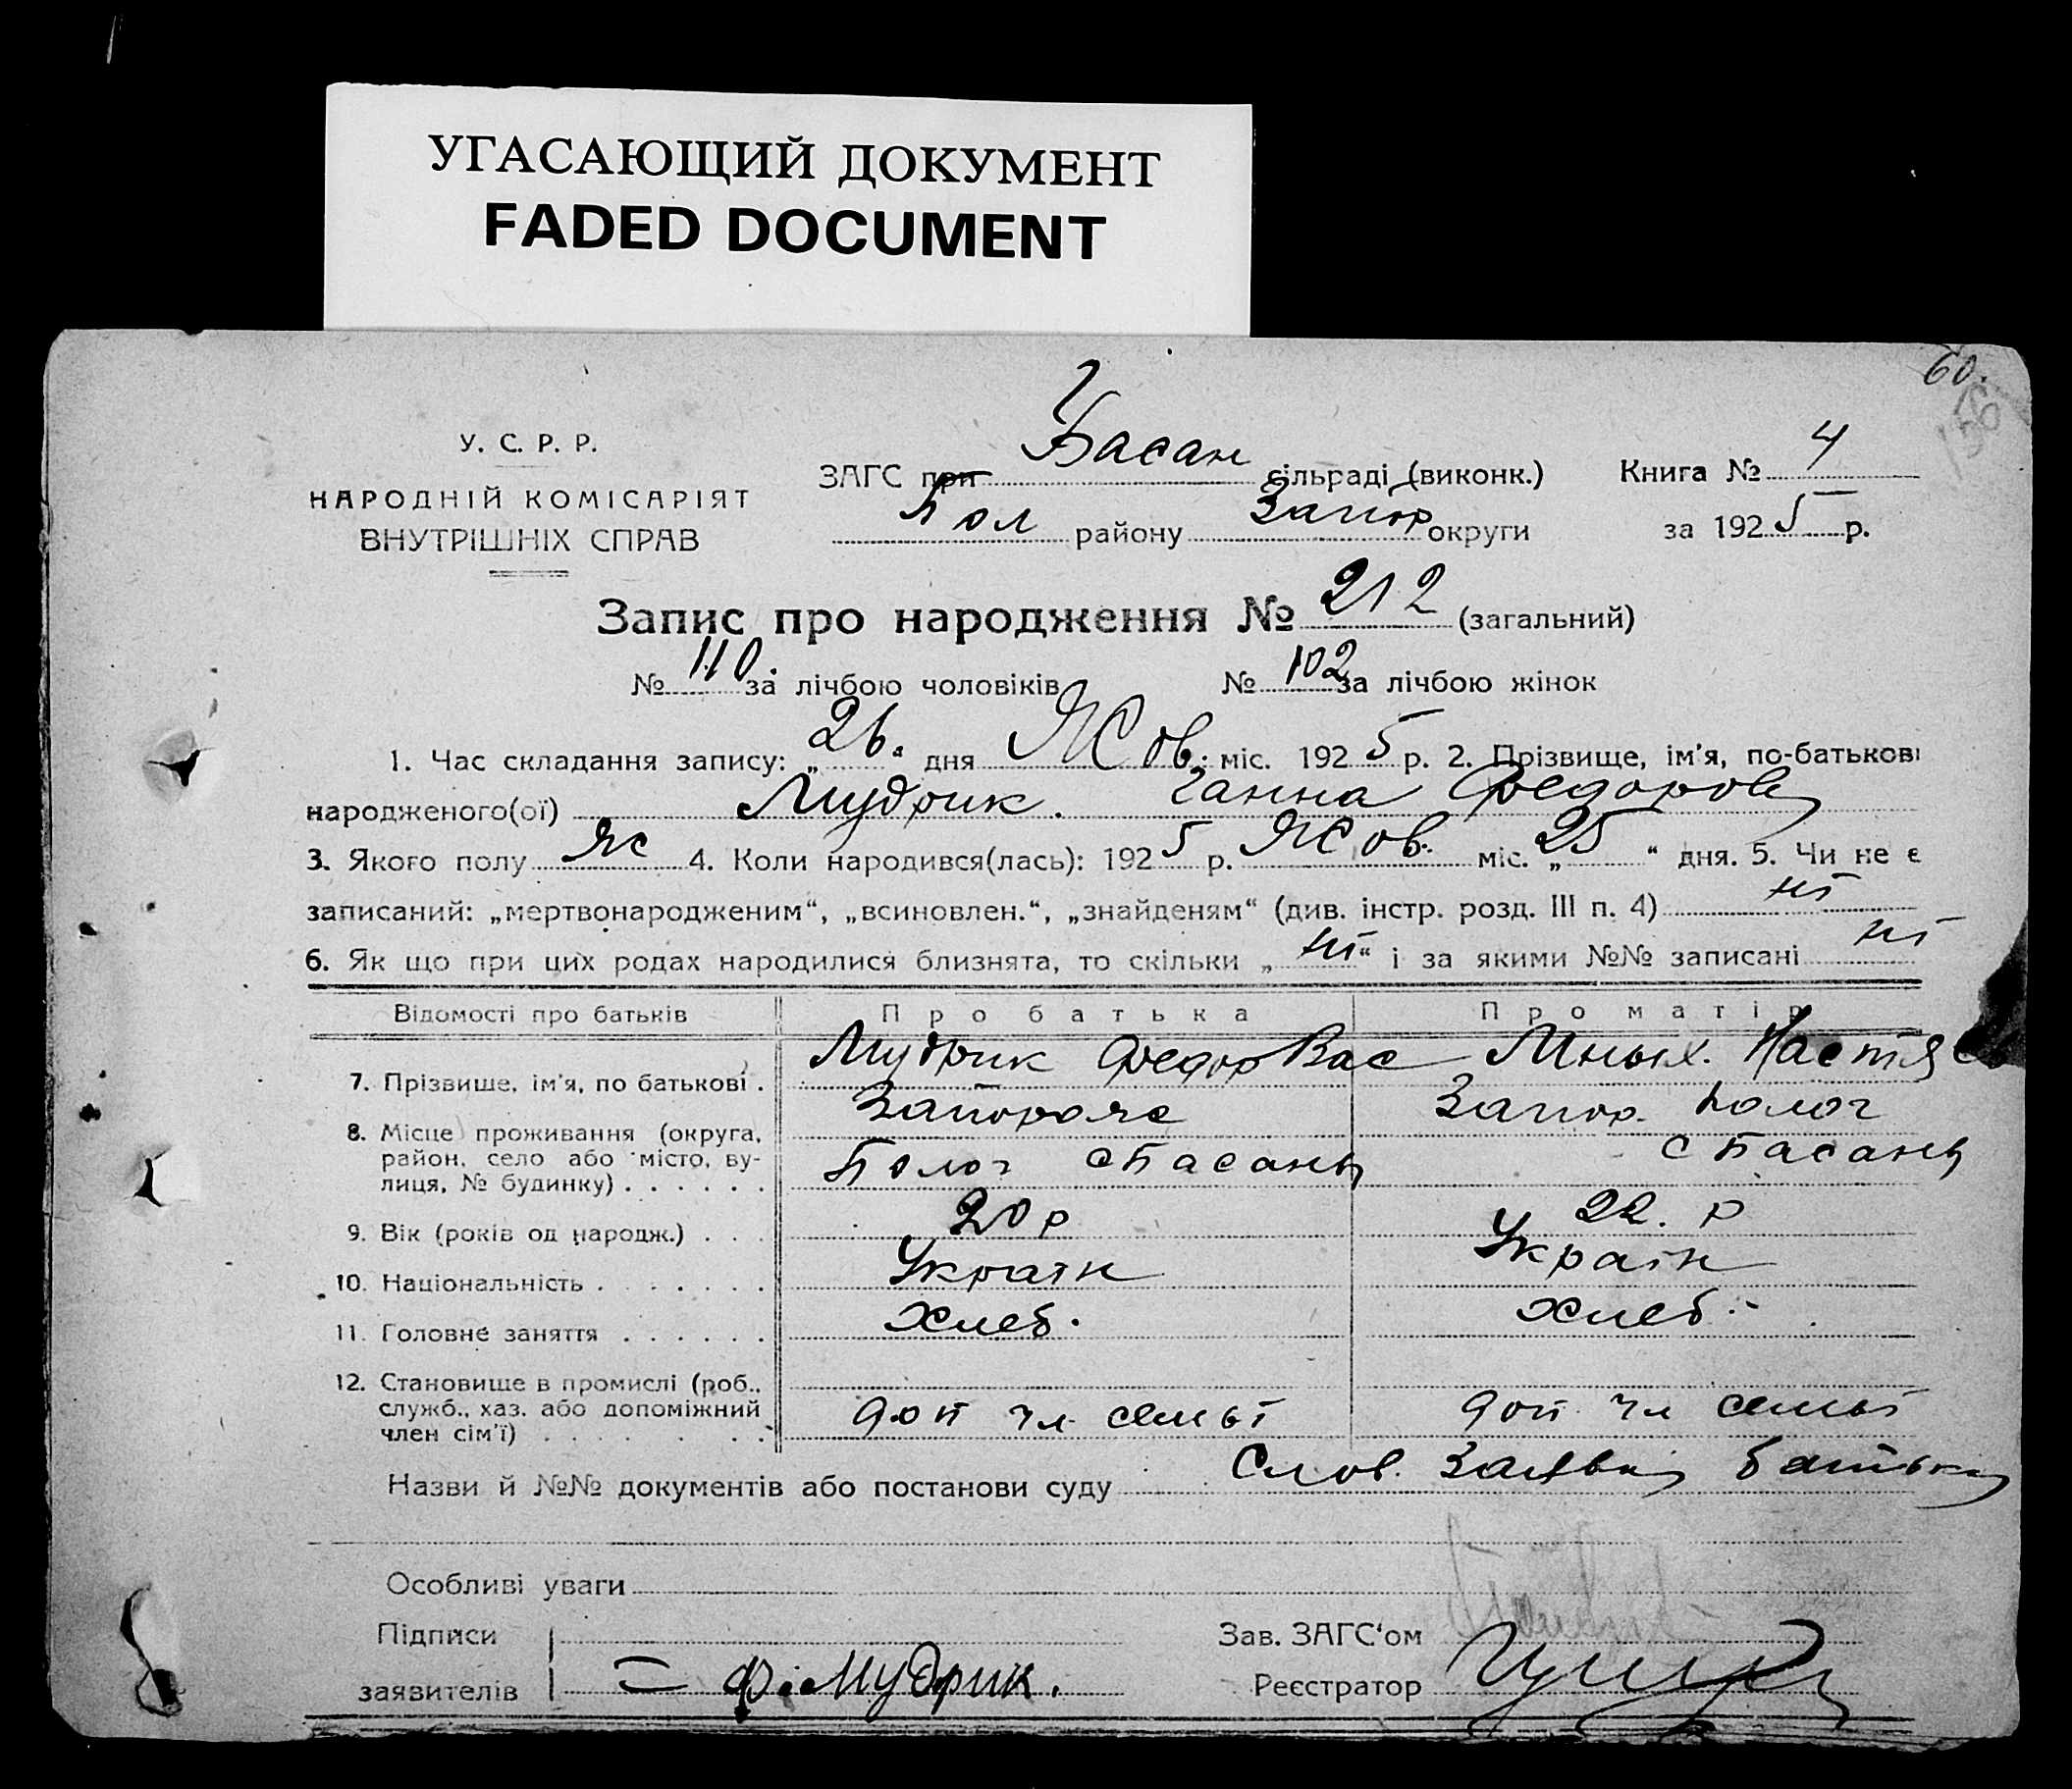 УГАСАЮЩИЙ ДОКУМЕНТ
FADED DOCUMENT
60.
156
У. С. Р. Р.
НАРОДНІЙ КОМІСАРІЯТ
ВНУТРІШНІХ СПРАВ
ЗАГС при Басан сільраді (виконк.)
Пол району Запор округи
Книга № 4
за 1925 р.
Запис про народження № 212 (загальний)
№ 110. за лічбою чоловіків № 102 за лічбою жінок
1. Час складання запису: „26" дня Жов. міс. 1925 р. 2. Прізвище, ім'я, по-батькові
народженого(ої) Мудрик. Ганна Федоров
3. Якого полу Ж 4. Коли народився(лась): 1925 р. Жов. міс. „25" дня. 5. Чи не є
записаний: „мертвонародженим", „всиновлен.", „знайденям" (див. інстр. розд. III п. 4) ні
6. Як що при цих родах народилися близнята, то скільки „ні" і за якими №№ записані ні
Відомості про батьків Про батька Про матір
7. Прізвище, ім'я, по батькові . Мудрик Федор Вас Настя
8. Місце проживання (округа, Запорож Запор. Полог
район, село або місто, ву- Полог с Басань с Басань
лиця, № будинку) . . . . . .
9. Вік (років од народж.) . . . 20 р 22. р
10. Національність . . . . . . Україн Україн
11. Головне заняття . . . . . . Хлеб. Хлеб.
12. Становище в промислі (роб.,
служб., хаз. або допоміжний доп чл семьї доп. чл семьї
член сім'ї) . . . . . .
Назви й №№ документів або постанови суду Слов. Заявка батька
Особливі уваги
Підписи Зав. ЗАГС'ом
заявителів Ф. Мудрик. Реєстратор